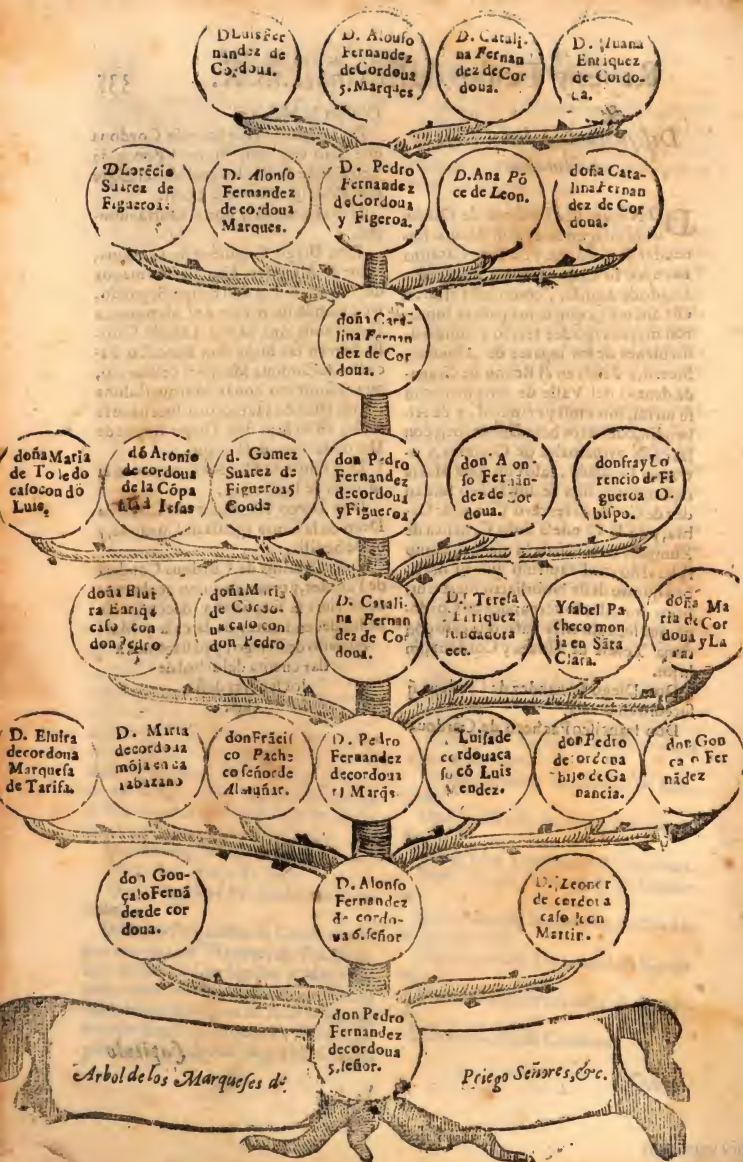 D Luis Fer
nandez de
Cordoua.
D. Aloufo
Fernandez
de Cordoua
5. Marques
D. Catali-
na Fernan
dez de Cor
doua.
D. Iuana
Enriquez
de Cordo-
ua.
D Lorēcio
Suarez de
Figueroa.
D. Alonso
Fernandez
de cordoua
Marques.
D. Pedro
Fernandez
de Cordoua
y Figeroa.
D. Ana Pō
ce de Leon.
doña Cata-
lina Fernan
dez de Cor
doua.
doña Cata-
lina Fernan
dez de Cor
doua.
doña Maria
de Toledo
caso con dō
Luis.
dō Atonio
de cordoua
de la Cōpa
Iesus
d. Gomez
Suarez de
Figueroa 5
Conde
don Pedro
Fernandez
decordoua
y Figueroa
don A on-
so Fernān-
dez de Cor
doua.
don fray Lo
rencio de Fi
gueroa O-
bispo.
doña Elui
ra Enriq̄e
caso con
don Pedro
doña Maria
de Cordo-
ua caso con
don Pedro
D. Catali-
na Fernan
dez de Cor
doua.
D. Teresa
Enriquez
fundadora
ecc.
Ysabel Pa
checo mon
ja en Sāta
Clara.
doña Ma
ria de Cor
doua y La
ra
D. Eluira
decordoua
Marquesa
de Tarifa.
D. Maria
decordoua
mōja en ca
labazano
don Frācis
co Pache
co señor de
Almuñar.
D. Pedro
Fernandez
decordoua
Marq̄s.
Luisa de
cordoua ca
so cō Luis
Mendez.
don Pedro
de cordoua
hijo de Ga
nancia.
don Gon
ça o Fer
nādez
don Gon-
çalo Fernā
dez de cor
doua.
D. Alonso
Fernandez
de cordo-
ua 6. señor
D. Leonor
de cordoua
caso con
Martin.
don Pedro
Fernandez
decordoua
5. señor.
Arbol de los Marqueses de Priego Señores, &c.